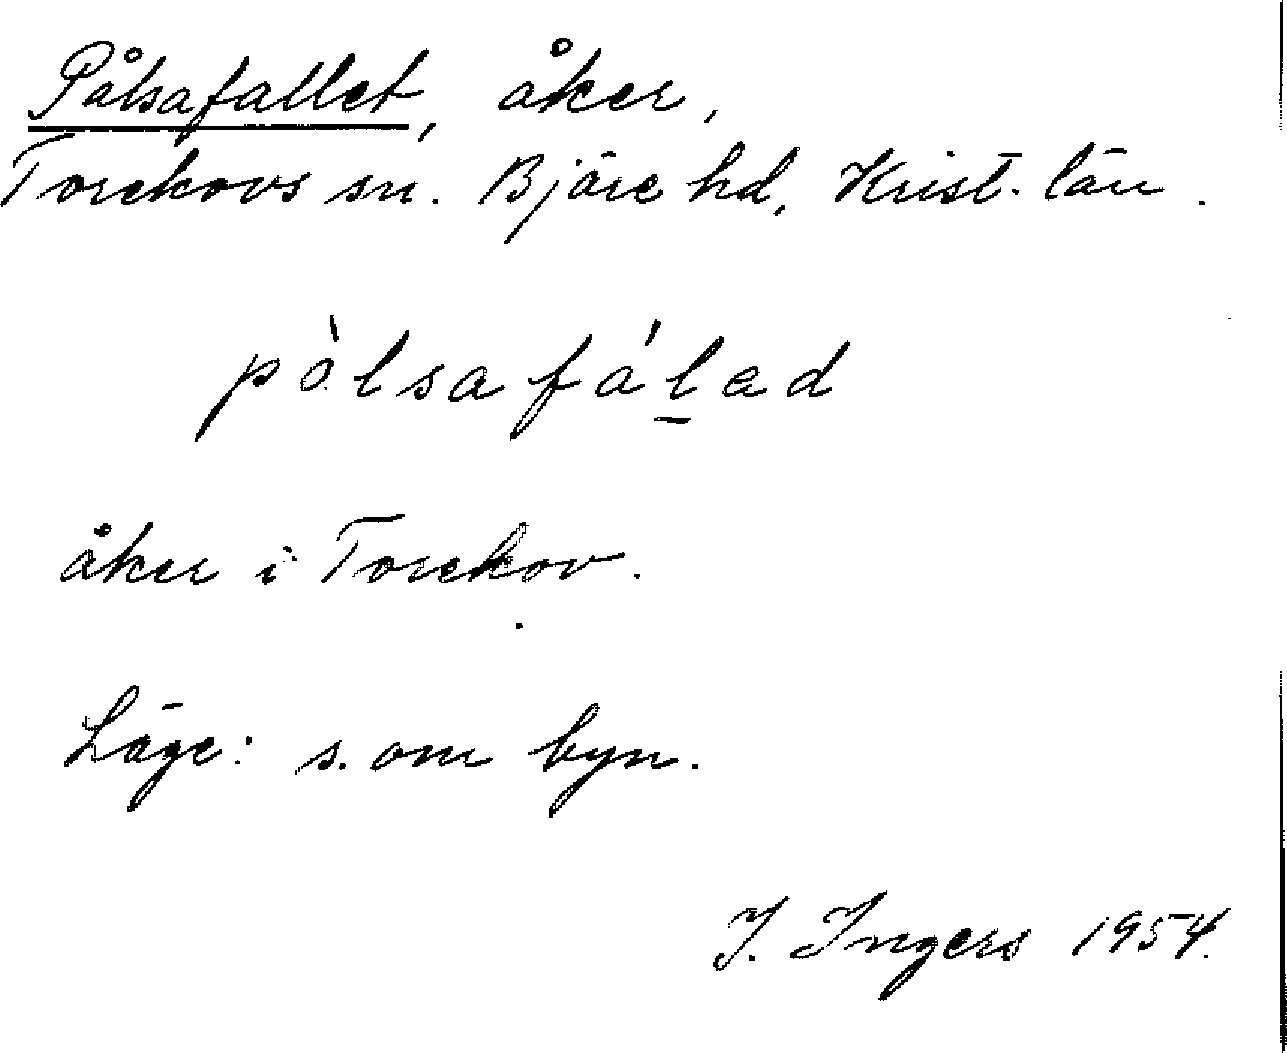 Pålsafallet, åker,
Torekovs sn. Bjäre hd, Krist. län.
pòlsafálad
åker i Torekov.
Läge: s. om byn.
I. Ingers 1954.